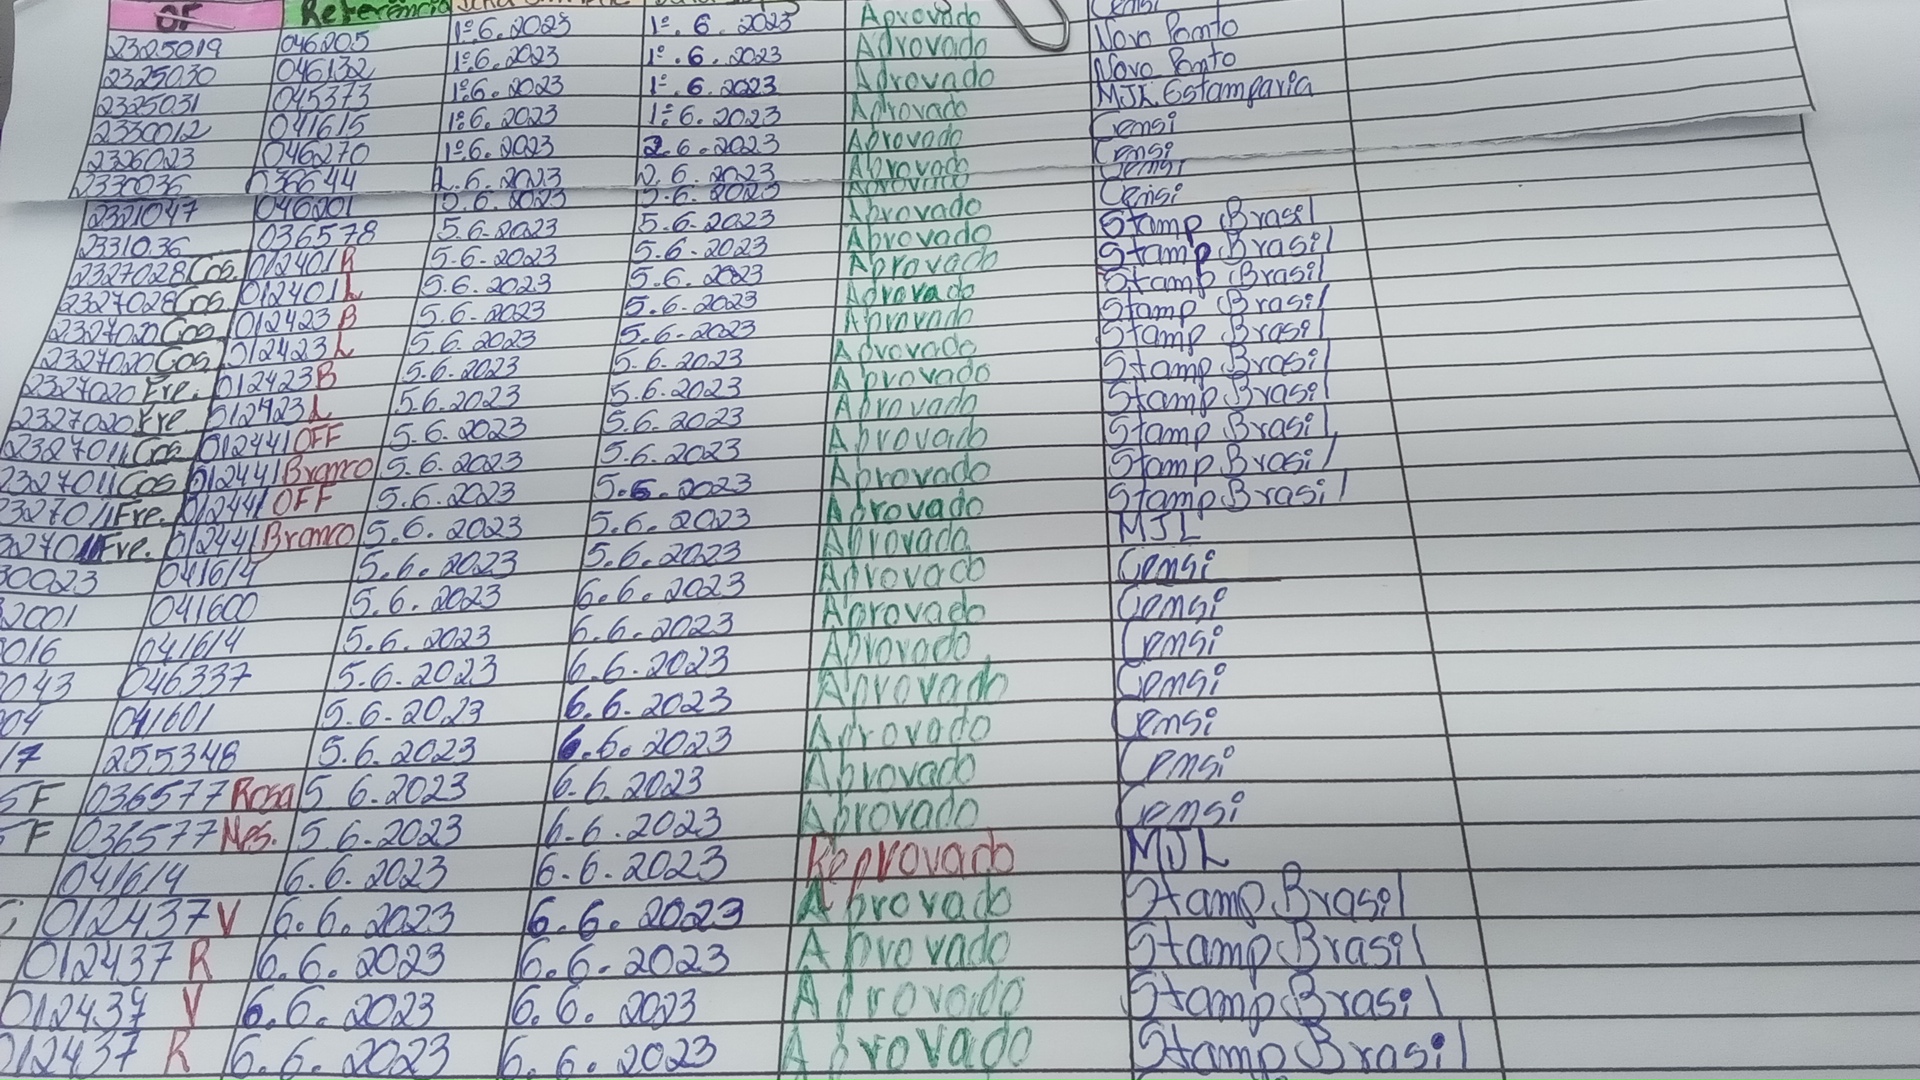 OF Referência
1º.6.2023 1º.6.2023 Aprovado Censi
2325019 046205 1º.6.2023 1º.6.2023 Aprovado Novo Ponto
2325030 046132 1º.6.2023 1º.6.2023 Aprovado Novo Ponto
2325031 045373 1º.6.2023 1º.6.2023 Aprovado MJL Estamparia
2330012 041615 1º.6.2023 2.6.2023 Aprovado Censi
2326023 046270 1º.6.2023 2.6.2023 Aprovado Censi
2330036 036644 2.6.2023 2.6.2023 Aprovado Censi
2321047 046201 5.6.2023 5.6.2023 Aprovado Censi
2331036 036578 5.6.2023 5.6.2023 Aprovado Stamp Brasil
2327028 Cos. 012401 R 5.6.2023 5.6.2023 Aprovado Stamp Brasil
2327028 Cos. 012401 L 5.6.2023 5.6.2023 Aprovado Stamp Brasil
2327020 Cos. 012423 B 5.6.2023 5.6.2023 Aprovado Stamp Brasil
2327020 Cos. 012423 L 5.6.2023 5.6.2023 Aprovado Stamp Brasil
2327020 Fre. 012423 B 5.6.2023 5.6.2023 Aprovado Stamp Brasil
2327020 Fre. 012423 L 5.6.2023 5.6.2023 Aprovado Stamp Brasil
2327011 Cos 012441 OFF 5.6.2023 5.6.2023 Aprovado Stamp Brasil
2327011 Cos 012441 Branco 5.6.2023 5.6.2023 Aprovado Stamp Brasil
327011 Fre. 012441 OFF 5.6.2023 5.6.2023 Aprovado Stamp Brasil
327011 Fre. 012441 Branco 5.6.2023 5.6.2023 Aprovado MJL
30023 041614 5.6.2023 5.6.2023 Aprovado Censi
2001 041600 5.6.2023 6.6.2023 Aprovado Censi
016 041614 5.6.2023 6.6.2023 Aprovado Censi
043 046337 5.6.2023 6.6.2023 Aprovado Censi
04 041601 5.6.2023 6.6.2023 Aprovado Censi
17 255348 5.6.2023 6.6.2023 Aprovado Censi
5F 036577 Rosa 5.6.2023 6.6.2023 Aprovado Censi
F 036577 Mes. 5.6.2023 6.6.2023 Reprovado MJL
041614 6.6.2023 6.6.2023 Aprovado Stamp Brasil
012437 V 6.6.2023 6.6.2023 Aprovado Stamp Brasil
012437 R 6.6.2023 6.6.2023 Aprovado Stamp Brasil
012437 V 6.6.2023 6.6.2023 Aprovado Stamp Brasil
012437 R 6.6.2023 6.6.2023